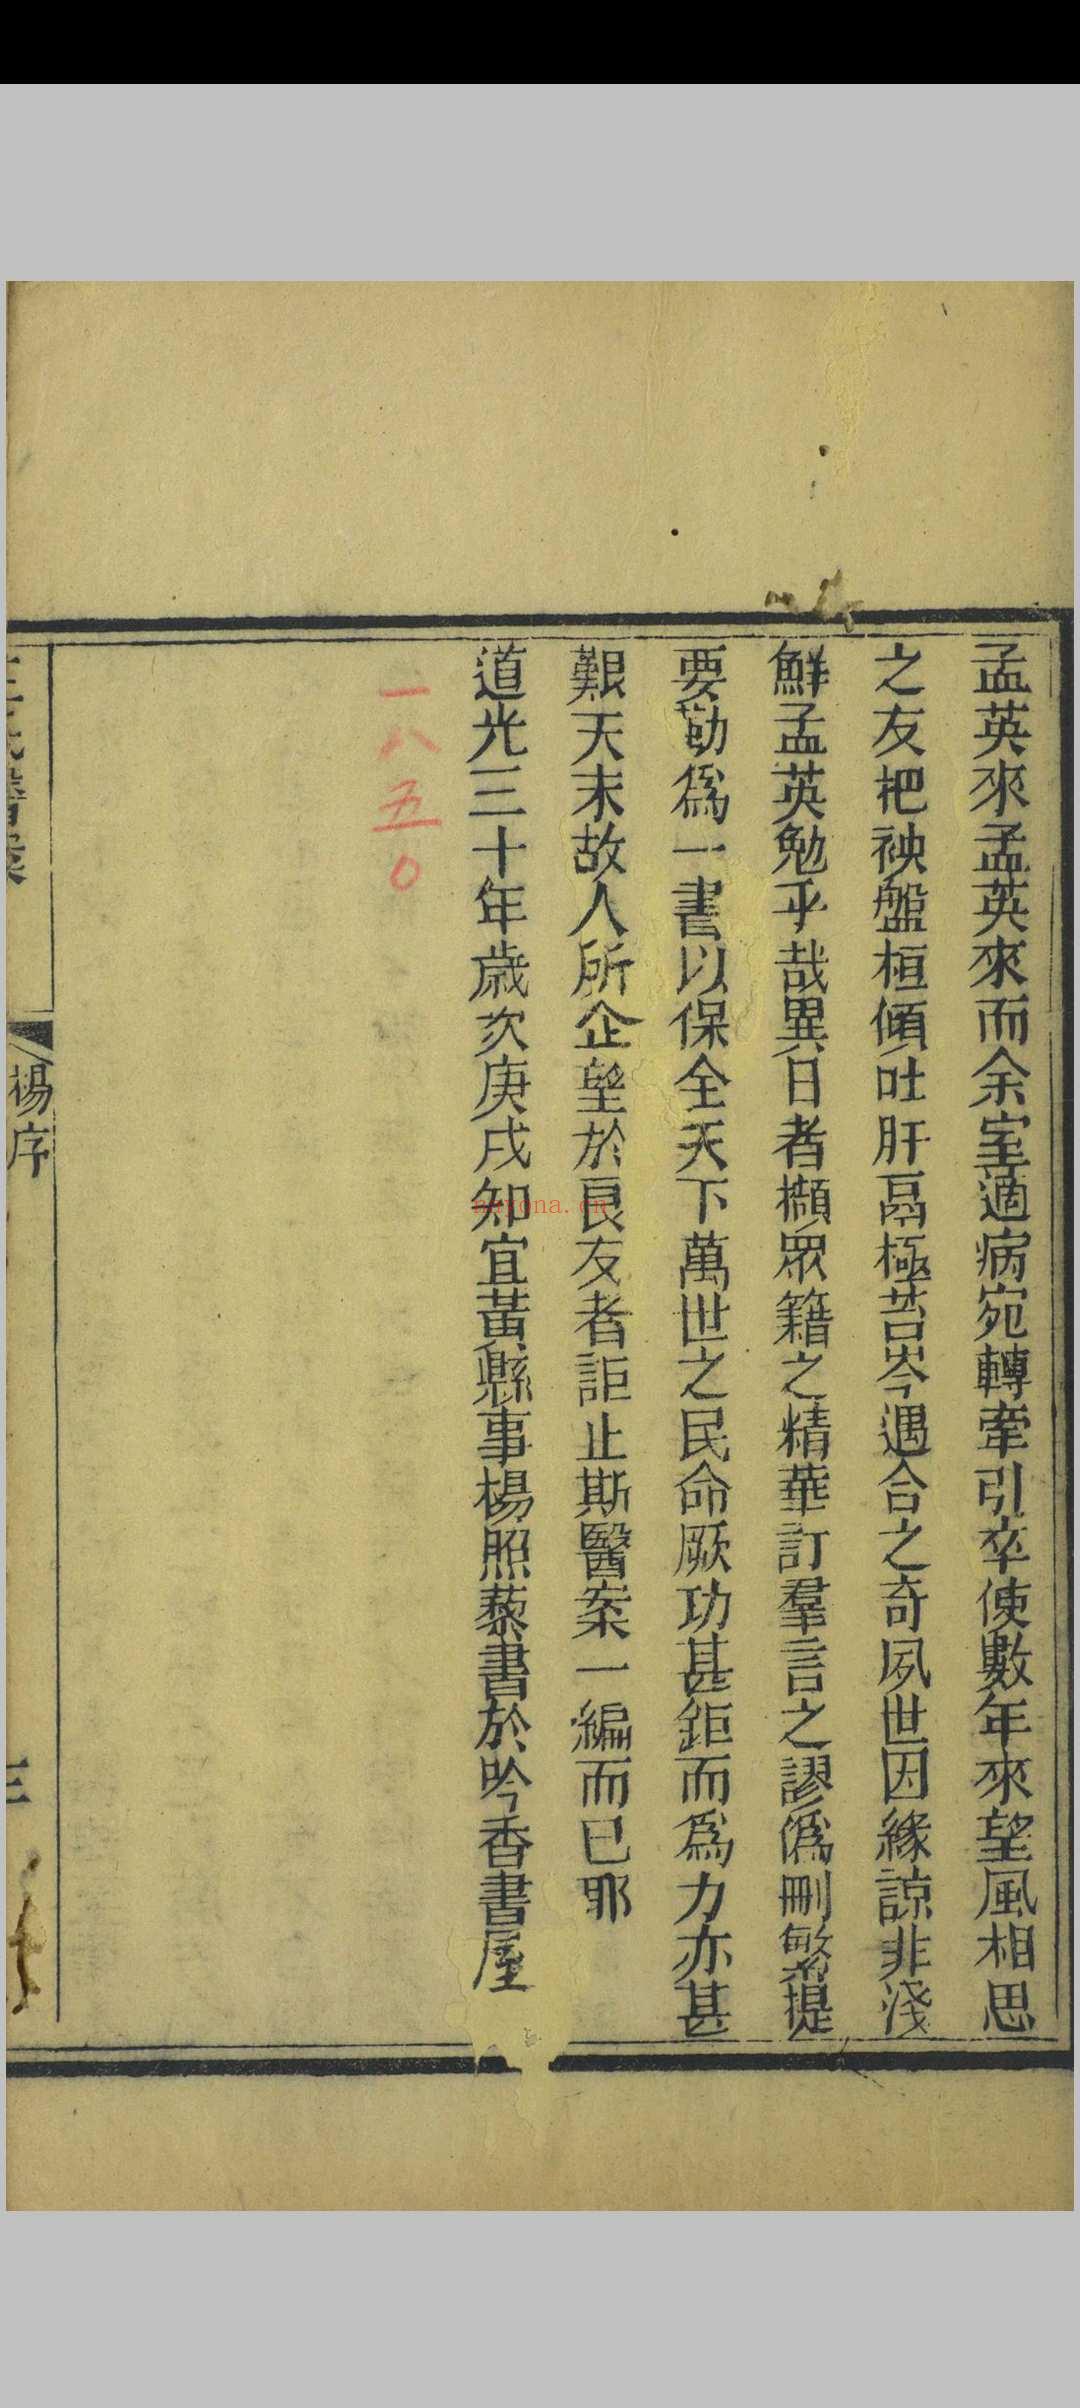 孟英來孟英來而余室適病宛轉牽引卒使數年來望風相思
之友把袂盤桓傾吐肝鬲極苔岑遇合之奇夙世因緣諒非淺
鮮孟英勉乎哉異日者擷眾籍之精華訂羣言之謬僞刪繁提
要勒爲一書以保全天下萬世之民命厥功甚鉅而爲力亦甚
艱天末故人所企望於良友者詎止斯醫案一編而已耶
道光三十年歲次庚戌知宜黃縣事楊照藜書於吟香書屋
一八五〇
楊序
三
nayona.cn